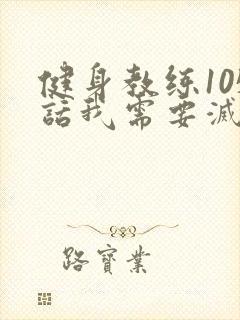 健身教练10
話我需要减
路寶業